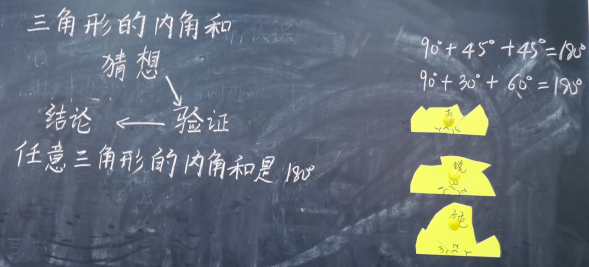 三角形的内角和
猜想
结论 ← 验证
任意三角形的内角和是180°
90°+45°+45°=180°
90°+30°+60°=180°
直
锐
钝